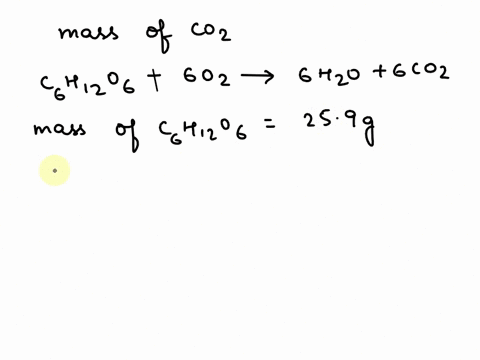 mass of CO2
C6H12O6 + 6O2 → 6H2O + 6CO2
mass of C6H12O6 = 25.9g